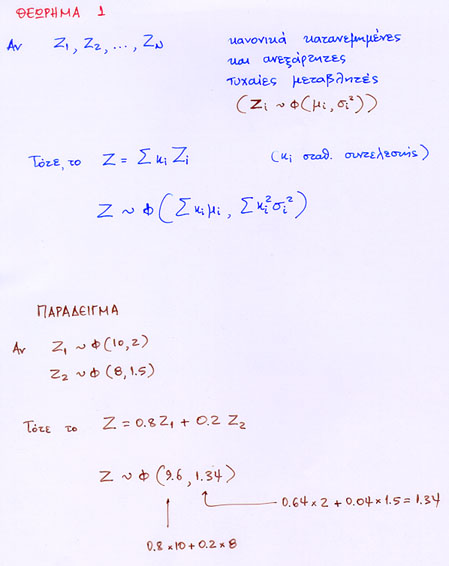 ΘΕΩΡΗΜΑ 1
Αν Z₁, Z₂, ..., Z_N κανονικά κατανεμημένες
και ανεξάρτητες
τυχαίες μεταβλητές
(Zᵢ ~ Φ(μᵢ, σᵢ²))
Τότε, το Z = Σ κᵢ Zᵢ (κᵢ σταθ. συντελεστής)
Z ~ Φ(Σκᵢμᵢ, Σκᵢ²σᵢ²)
ΠΑΡΑΔΕΙΓΜΑ
Αν Z₁ ~ Φ(10,2)
Z₂ ~ Φ(8,1.5)
Τότε το Z = 0.8Z₁ + 0.2 Z₂
Z ~ Φ(9.6, 1.34)
0.64 × 2 + 0.04 × 1.5 = 1.34
0.8 × 10 + 0.2 × 8